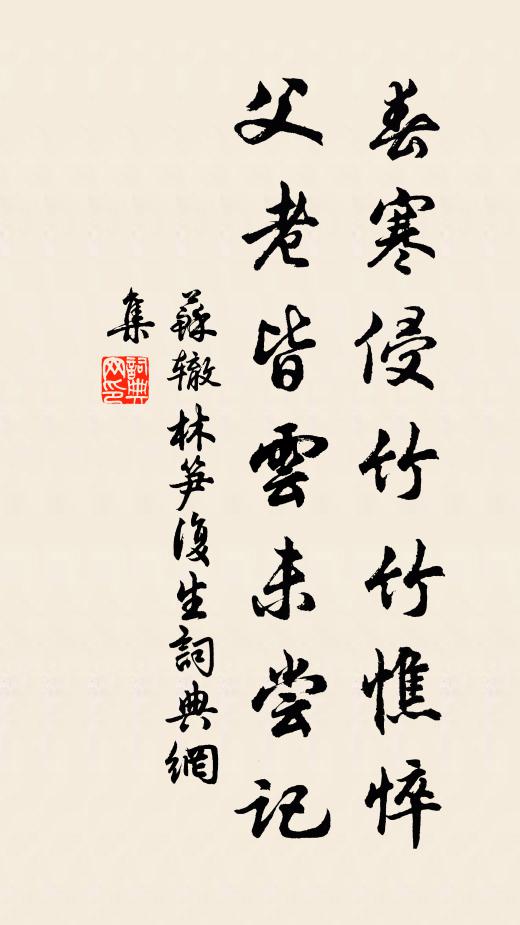 春寒侵竹竹憔悴
父老皆雲未尝记
蘇辙林笋復生詞典網
集
詞典网印